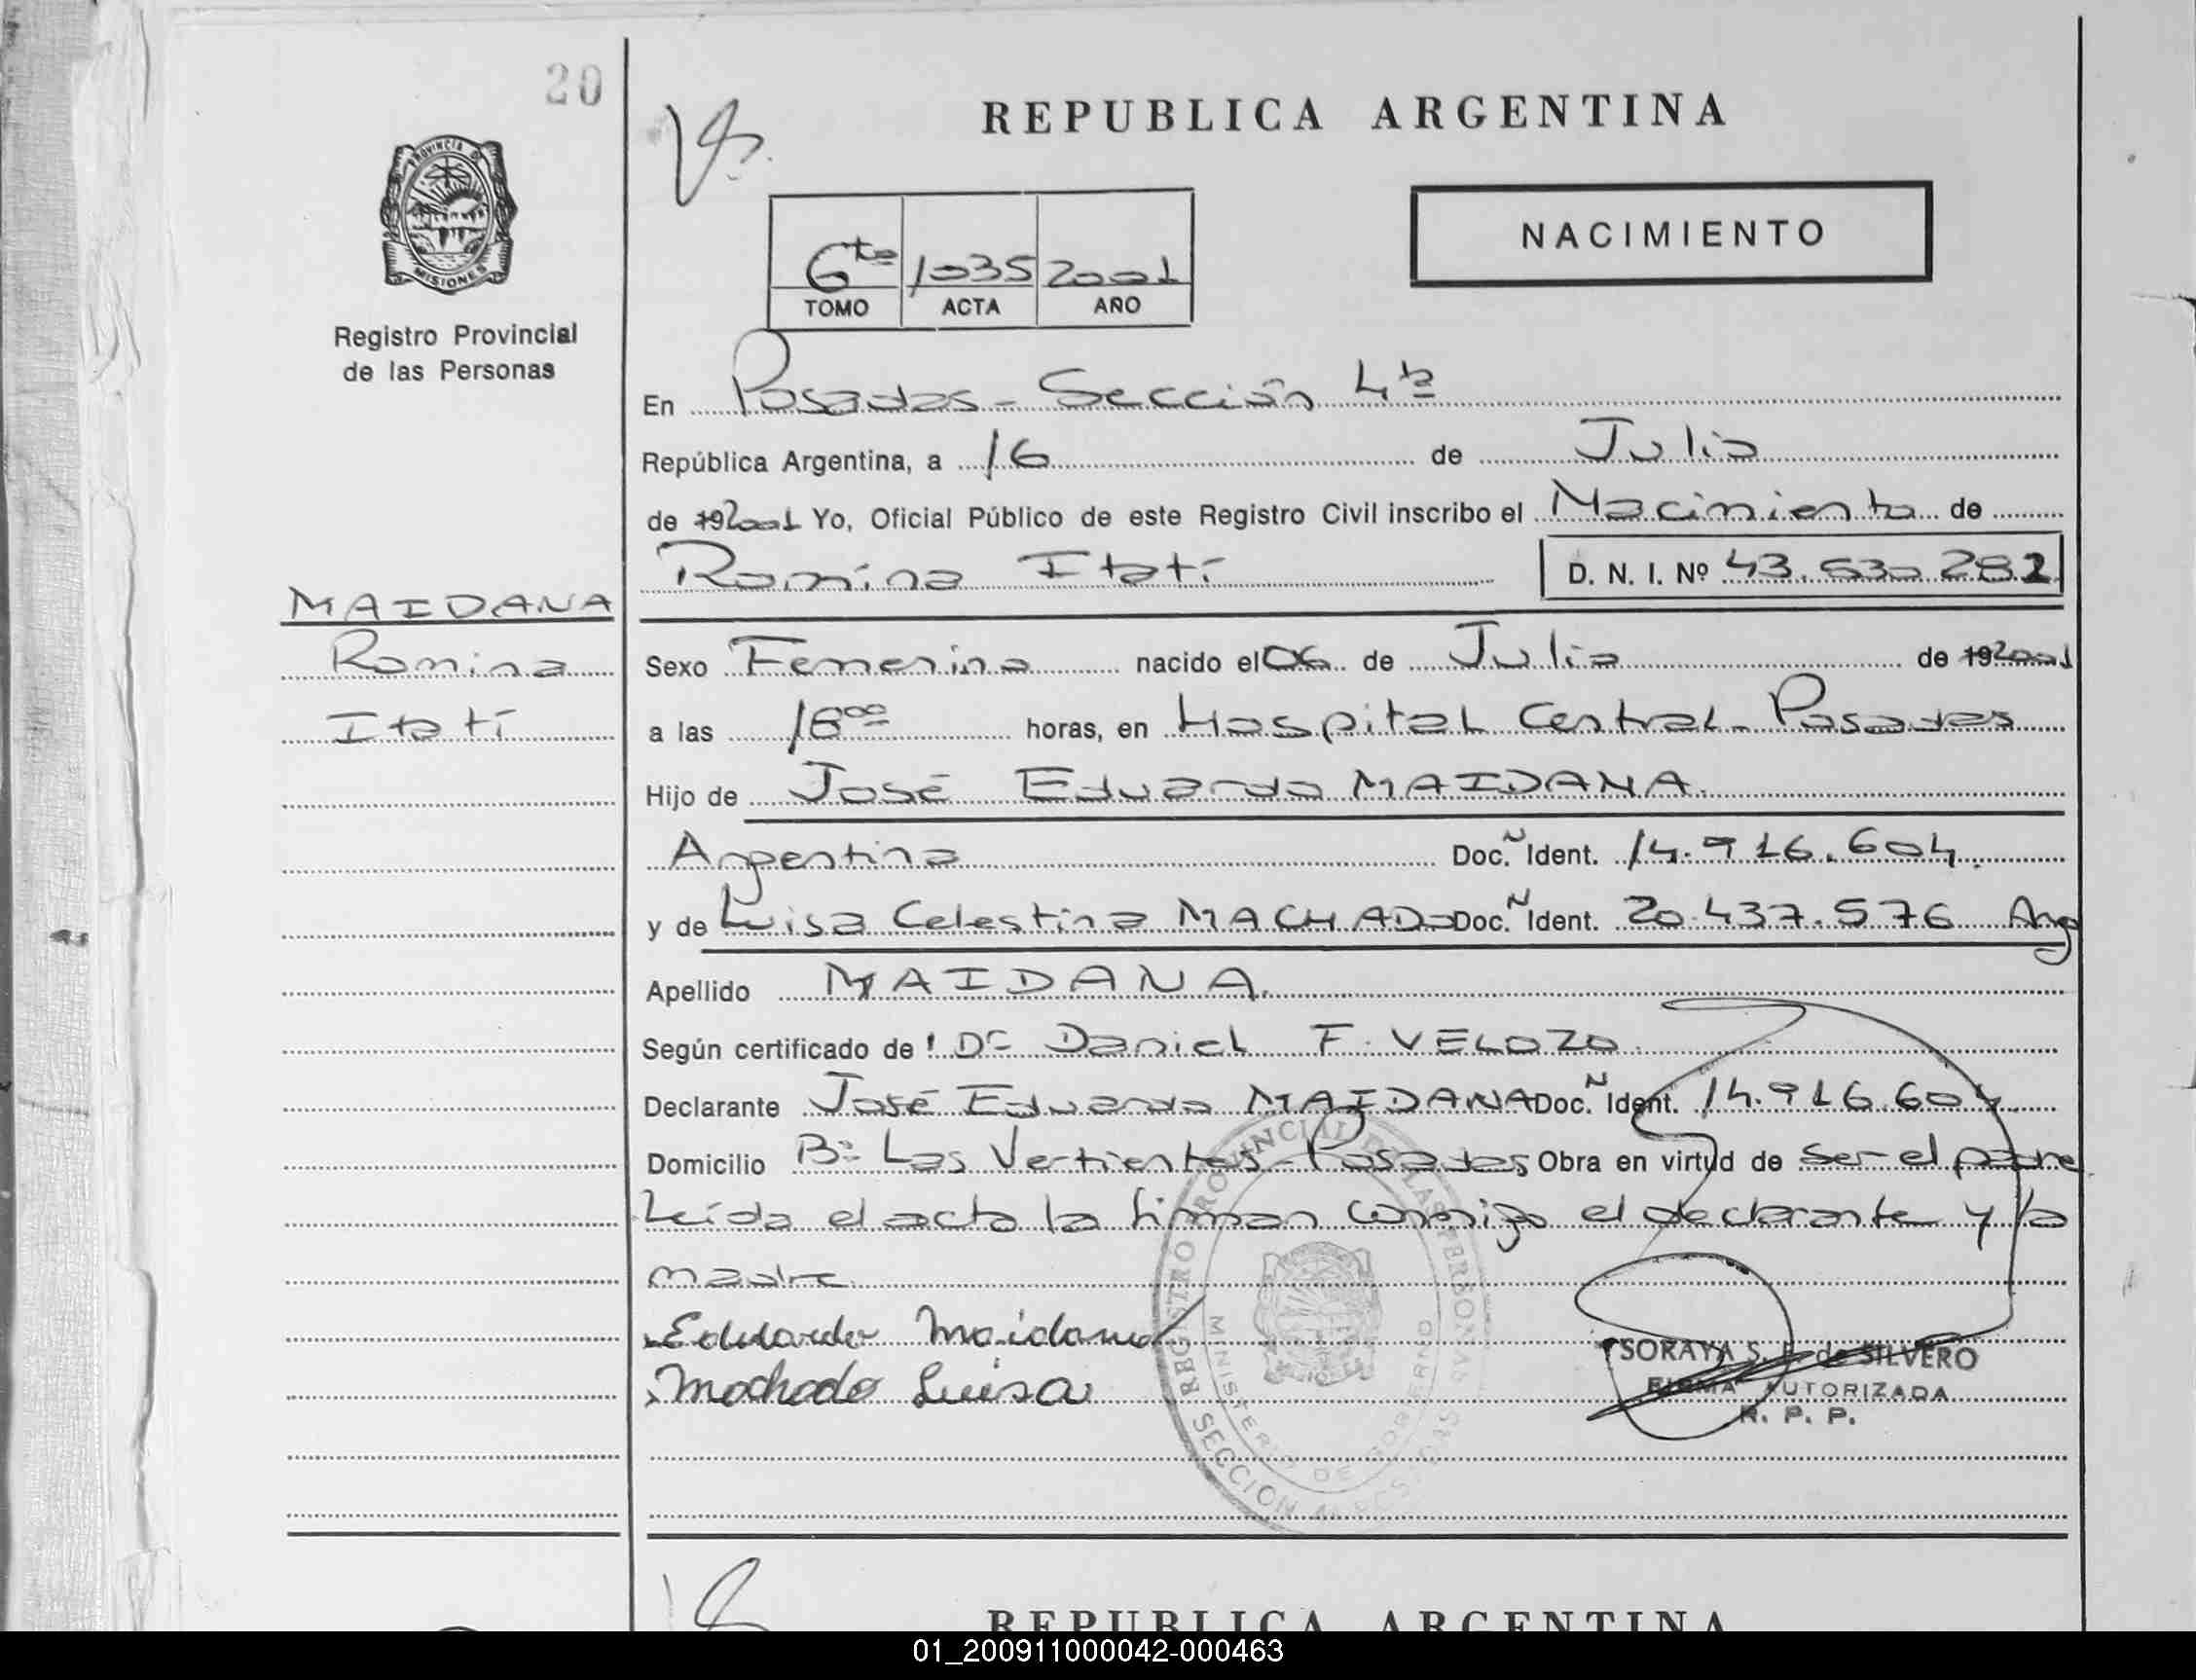 20
REPUBLICA ARGENTINA
PROVINCIA DE
MISIONES
Registro Provincial
de las Personas
NACIMIENTO
6to 1035 2001
TOMO ACTA AÑO
En Posadas - Sección 4ta
República Argentina, a 16 de Julio
de 192001 Yo, Oficial Público de este Registro Civil inscribo el Nacimiento de
Romina Itatí D. N. I. Nº 43.630.282
MAIDANA
Romina
Itatí
Sexo Femenino nacido el 06 de Julio de 192001
a las 18 00 horas, en Hospital Central - Posadas
Hijo de José Eduardo MAIDANA.
Argentina Doc. N Ident. 14.916.604.
y de Luisa Celestina MACHADO Doc. N Ident. 20.437.576 Arg
Apellido MAIDANA.
Según certificado de: Dr Daniel F. VELOZO.
Declarante José Eduardo MAIDANA Doc. N Ident. 14.916.604.
Domicilio Bº Las Vertientes - Posadas Obra en virtud de ser el padre
Leída el acta la firman conmigo el declarante y la
madre.
Eduardo Maidana
Machado Luisa
REGISTRO PROVINCIAL DE LAS PERSONAS
MINISTERIO DE GOBIERNO
SECCION
SORAYA S. de SILVERO
FIRMA AUTORIZADA
R. P. P.
REPUBLICA ARGENTINA
01_200911000042-000463